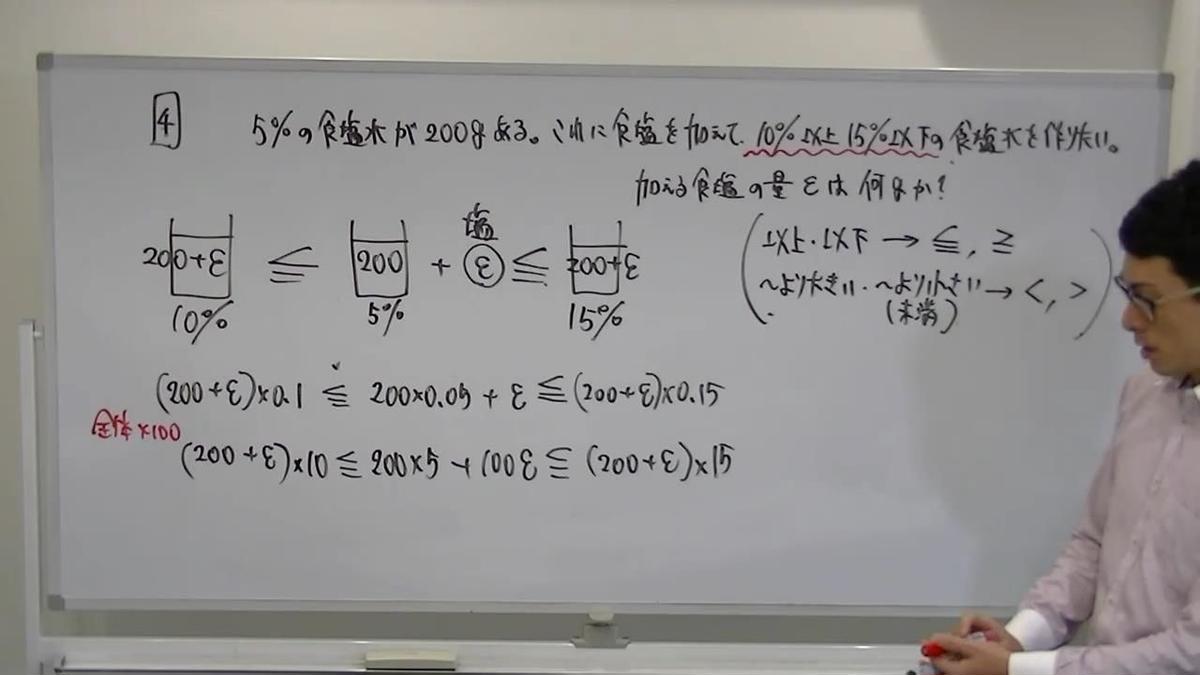 4
5%の食塩水が200gある。これに食塩を加えて、10%以上15%以下の食塩水を作りたい。
加える食塩の量εは何gか?
200+ε ≦ 200 + 塩 ε ≦ 200+ε
10% 5% 15%
(以上・以下 → ≦, ≧
~より大きい・~より小さい → <, >)
(未満)
(200+ε)×0.1 ≦ 200×0.05 + ε ≦ (200+ε)×0.15
全体×100
(200+ε)×10 ≦ 200×5 + 100ε ≦ (200+ε)×15